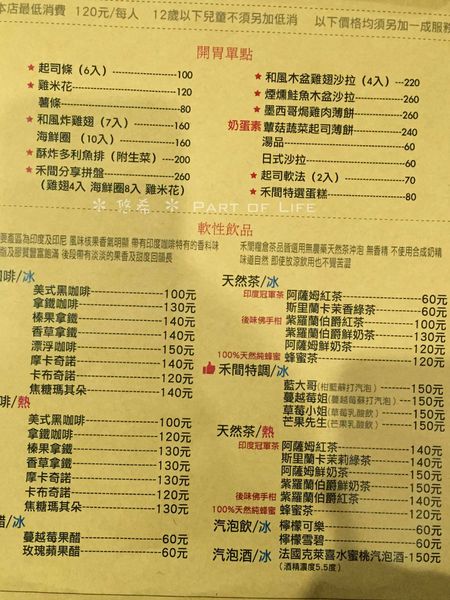 本店最低消費 120元/每人 12歲以下兒童不須另加低消 以下價格均須另加一成服務
開胃單點
★起司條（6入）----100
★雞米花----120
薯條----80
★和風炸雞翅（7入）----160
海鮮圈（10入）----160
★酥炸多利魚排（附生菜）----200
★禾間分享拼盤----260
（雞翅4入 海鮮圈8入 雞米花）
★和風木盆雞翅沙拉（4入）---220
★煙燻鮭魚木盆沙拉----260
★墨西哥焗雞肉薄餅----260
奶蛋素 蘑菇蔬菜起司薄餅----240
湯品----60
日式沙拉----60
★起司軟法（2入）----70
★禾間特選蛋糕----80
※ 悠希 ※ PART OF LIFE
軟性飲品
要產區為印度及印尼 風味核果香氣明顯 帶有印度咖啡特有的香料味
脂及膠質豐富飽滿 後段帶有淡淡的果香及甜度回韻長
咖啡/冰
美式黑咖啡----100元
拿鐵咖啡----130元
榛果拿鐵----140元
香草拿鐵----140元
漂浮咖啡----150元
摩卡奇諾----140元
卡布奇諾----120元
焦糖瑪其朵----140元
咖啡/熱
美式黑咖啡----100元
拿鐵咖啡----120元
榛果拿鐵----130元
香草拿鐵----130元
摩卡奇諾----130元
卡布奇諾----120元
焦糖瑪其朵----130元
醋/冰
蔓越莓果醋----60元
玫瑰蘋果醋----60元
禾間糧倉茶品皆選用無農藥天然茶沖泡 無香精 不使用合成奶精
味道自然 即使放涼飲用也不覺苦澀
天然茶/冰
印度冠軍茶 阿薩姆紅茶----60元
斯里蘭卡茉香綠茶----60元
後味佛手柑 紫羅蘭伯爵紅茶----100元
紫羅蘭伯爵鮮奶茶----130元
阿薩姆鮮奶茶----120元
100%天然純蜂蜜 蜂蜜茶----120元
禾間特調/冰
藍大哥(柑藍蘇打汽泡)----150元
蔓越莓姐(蔓越莓蘇打汽泡)----150元
草莓小姐(草莓乳酸飲)----150元
芒果先生(芒果乳酸飲)----150元
天然茶/熱
印度冠軍茶 阿薩姆紅茶----140元
斯里蘭卡茉莉綠茶----140元
阿薩姆鮮奶茶----150元
紫羅蘭伯爵鮮奶茶----150元
後味佛手柑 紫羅蘭伯爵紅茶----140元
100%天然純蜂蜜 蜂蜜茶----120元
汽泡飲/冰 檸檬可樂----60元
檸檬雪碧----60元
汽泡酒/冰 法國克萊喜水蜜桃汽泡酒-150元
(酒精濃度5.5度)